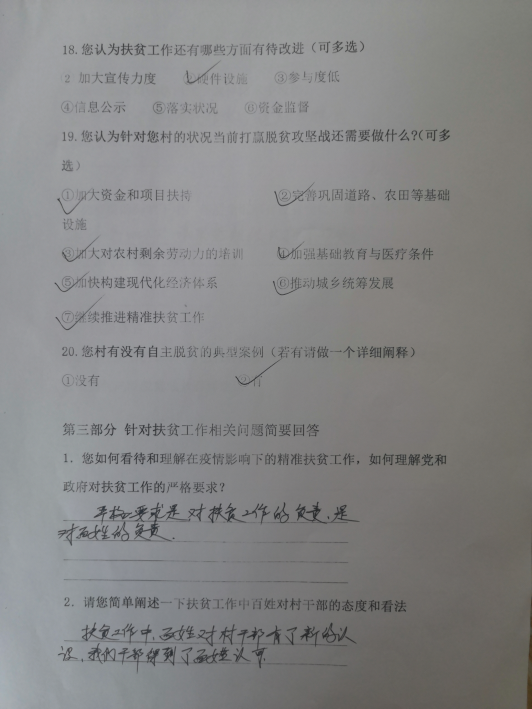 18.您认为扶贫工作还有哪些方面有待改进（可多选）
2 加大宣传力度 ②硬件设施 ③参与度低
④信息公示 ⑤落实状况 ⑥资金监督
19.您认为针对您村的状况当前打赢脱贫攻坚战还需要做什么?(可多
选）
①加大资金和项目扶持 ②完善巩固道路、农田等基础
设施
③加大对农村剩余劳动力的培训 ④加强基础教育与医疗条件
⑤加快构建现代化经济体系 ⑥推动城乡统筹发展
⑦继续推进精准扶贫工作
20.您村有没有自主脱贫的典型案例（若有请做一个详细阐释）
①没有 ②有
第三部分 针对扶贫工作相关问题简要回答
1．您如何看待和理解在疫情影响下的精准扶贫工作，如何理解党和
政府对扶贫工作的严格要求？
严格要求是对扶贫工作的负责，是
对百姓的负责.
2．请您简单阐述一下扶贫工作中百姓对村干部的态度和看法
扶贫工作中，百姓对村干部有了新的认
识，我们干部得到了百姓认可.